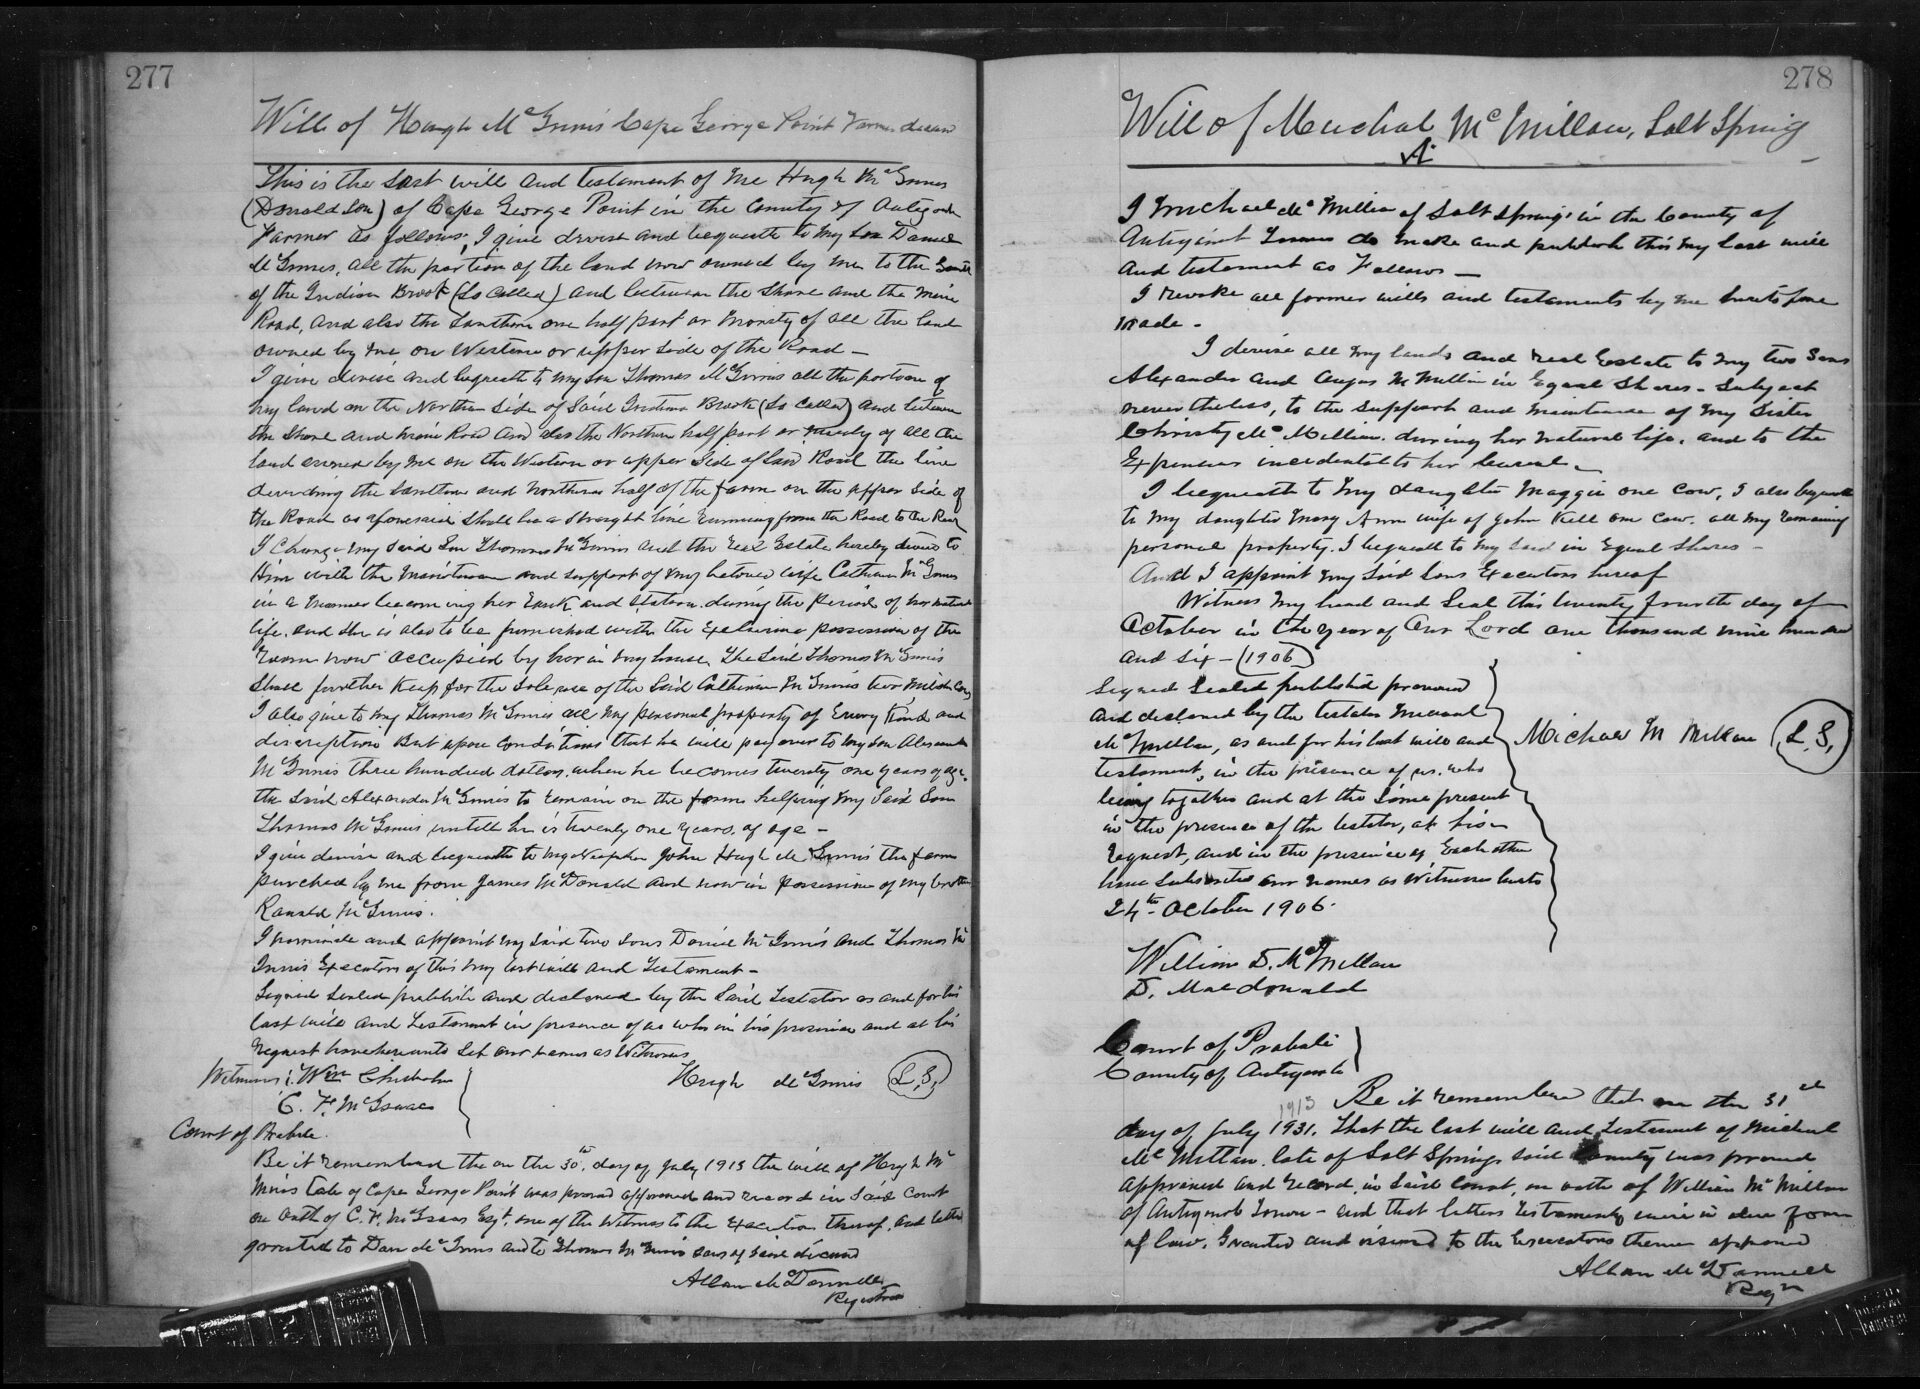 277
Will of Hugh McGinnis Cape George Point Farmer
This is the Last will and testament of me Hugh McGinnis
(Donald Son) of Cape George Point in the County of Antigonish
Farmer as follows, I give devise and bequeath to my son Daniel
McGinnis, all the portion of the land now owned by me to the South
of the Indian Brook (So Called) and between the Shore and the Main
Road, and also the Southern one half part or moiety of all the land
owned by me on Western or upper side of the Road —
I give devise and bequeath to my son Thomas McGinnis all the portion of
my land on the Northern Side of Said Indian Brook (So Called) and between
the Shore and Main Road and also the Northern half part or moiety of all the
land owned by me on the Western or upper Side of Said Road the line
deviding the Southern and Northern half of the farm on the upper side of
the Road as aforesaid Shall be a Straight line running from the Road to the Rear
I Charge my said Son Thomas McGinnis and the real Estate hereby devised to
Him with the Maintenance and support of my beloved wife Catherine McGinnis
in a manner becoming her rank and Station during the period of her natural
life, and She is also to be furnished with the Exclusive possession of the
room now occupied by her in my house, The Said Thomas McGinnis
Shall further keep for the sole use of the Said Catherine McGinnis two milch Cows
I also give to my Thomas McGinnis all my personal property of Every Kind and
discription But upon conditions that he will pay over to my son Alexander
McGinnis three hundred dollars, when he becomes twenty one years of age,
the Said Alexander McGinnis to remain on the farm helping my Said Son
Thomas McGinnis untill he is twenty one years of age —
I give devise and bequeath to my Nephew John Hugh McGinnis the farm
purched by me from James McDonald and now in possession of my brother
Ranald McGinnis.
I nominate and appoint my Said two sons Daniel McGinnis and Thomas Mc
Innis Executors of this my last will and Testament —
Signed Sealed publish and declared by the Said Testator as and for his
last will and Testament in presence of us who in his presence and at his
request have hereunto Set our names as Witnesses
Witnesses: Wm Chisholm
C. F. McIsaac
Hugh McGinnis (L.S.)
Court of Probate.
Be it remembered the on the 30th day of July 1913 the will of Hugh Mc
Innis late of Cape George Point was proved approved and record in Said Court
on oath of C. F. McIsaac Esqr. one of the Witness to the Execution thereof, and letters
granted to Dan McInnis and to Thomas McGinnis sons of Said deceased
Allan McDonnell
Registrar
278
Will of Meuchal McMillan, Salt Spring
A
I Michael McMillan of Salt Springs in the County of
Antigonish do make and publish this my last will
And testament as Follows —
I revoke all former wills and testaments by me heretofore
made —
I devise all my lands and real Estate to my two Sons
Alexander and Angus McMillan in Equal Shares - Subject
nevertheless, to the support and maintenance of my Sister
Christy McMillan during her natural life, and to the
Expenses incidental to her burial —
I bequeath to my daughter Maggie one cow, I also bequeath
to my daughter Mary Ann wife of John Kell one cow. all my remaining
personal property, I bequeath to my said in Equal Shares —
And I appoint my Said Sons Executors hereof
Witness my hand and Seal this twenty fourth day of
October in the year of Our Lord one thousand nine hundred
and six — (1906)
Signed Sealed published pronounced
and declared by the testator Michael
McMillan, as and for his last will and
testament, in the presence of us, who
being together and at the same present
in the presence of the testator, at his
request, and in the presence of Each other
have Subscribed our names as Witnesses hereto
24th October 1906.
Michael McMillan (L.S.)
William D. McMillan
D. Macdonald
Court of Probate
County of Antigonish
Be it remembered that on the 31st
1913
day of July 1931, That the last will and Testament of Michael
McMillan late of Salt Springs said County was proved
approved and record, in Said Court, on oath of William McMillan
of Antigonish Town - and that letters Testamentary were in due form
of law, Granted and issued to the Executors therein
Allan McDonnell
Regr